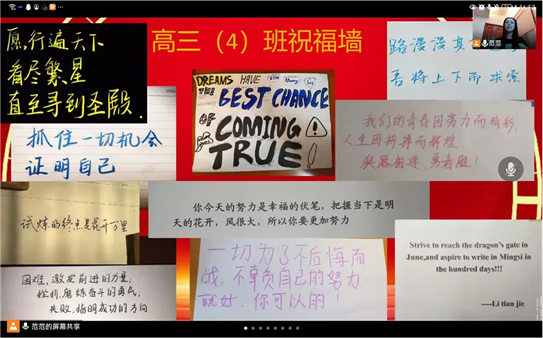 高三（4）班祝福墙
范范
愿,行遍天下
看尽繁星
直至寻到圣殿.
抓住一切机会
证明自己
DREAMS HAVE
BEST CHANCE
COMING
TRUE
路漫漫其
吾将上下而求索
我们的青春因努力而精彩,
人生因拼搏而辉煌
试炼的终点是花开万里
你今天的努力是幸福的伏笔，把握当下是明
天的花开，风很大，所以你要更加努力
困难,激发前进的力量,
挫折,磨练奋斗的勇气,
失败,指明成功的方向
一切为了不后悔而
战,不辜负自己的努力
就好,你可以的！
Strive to reach the dragon's gate in
June,and aspire to write in Mingsi in
the hundred days!!!
----Li tian jie
范范的屏幕共享